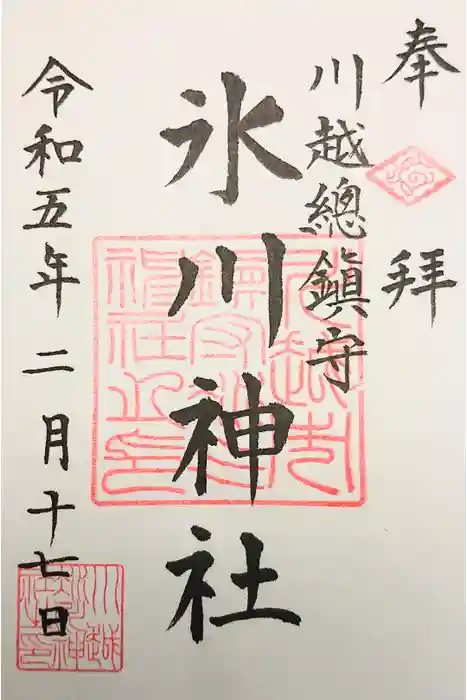 奉拝
川越總鎮守
氷川神社
令和五年二月十七日